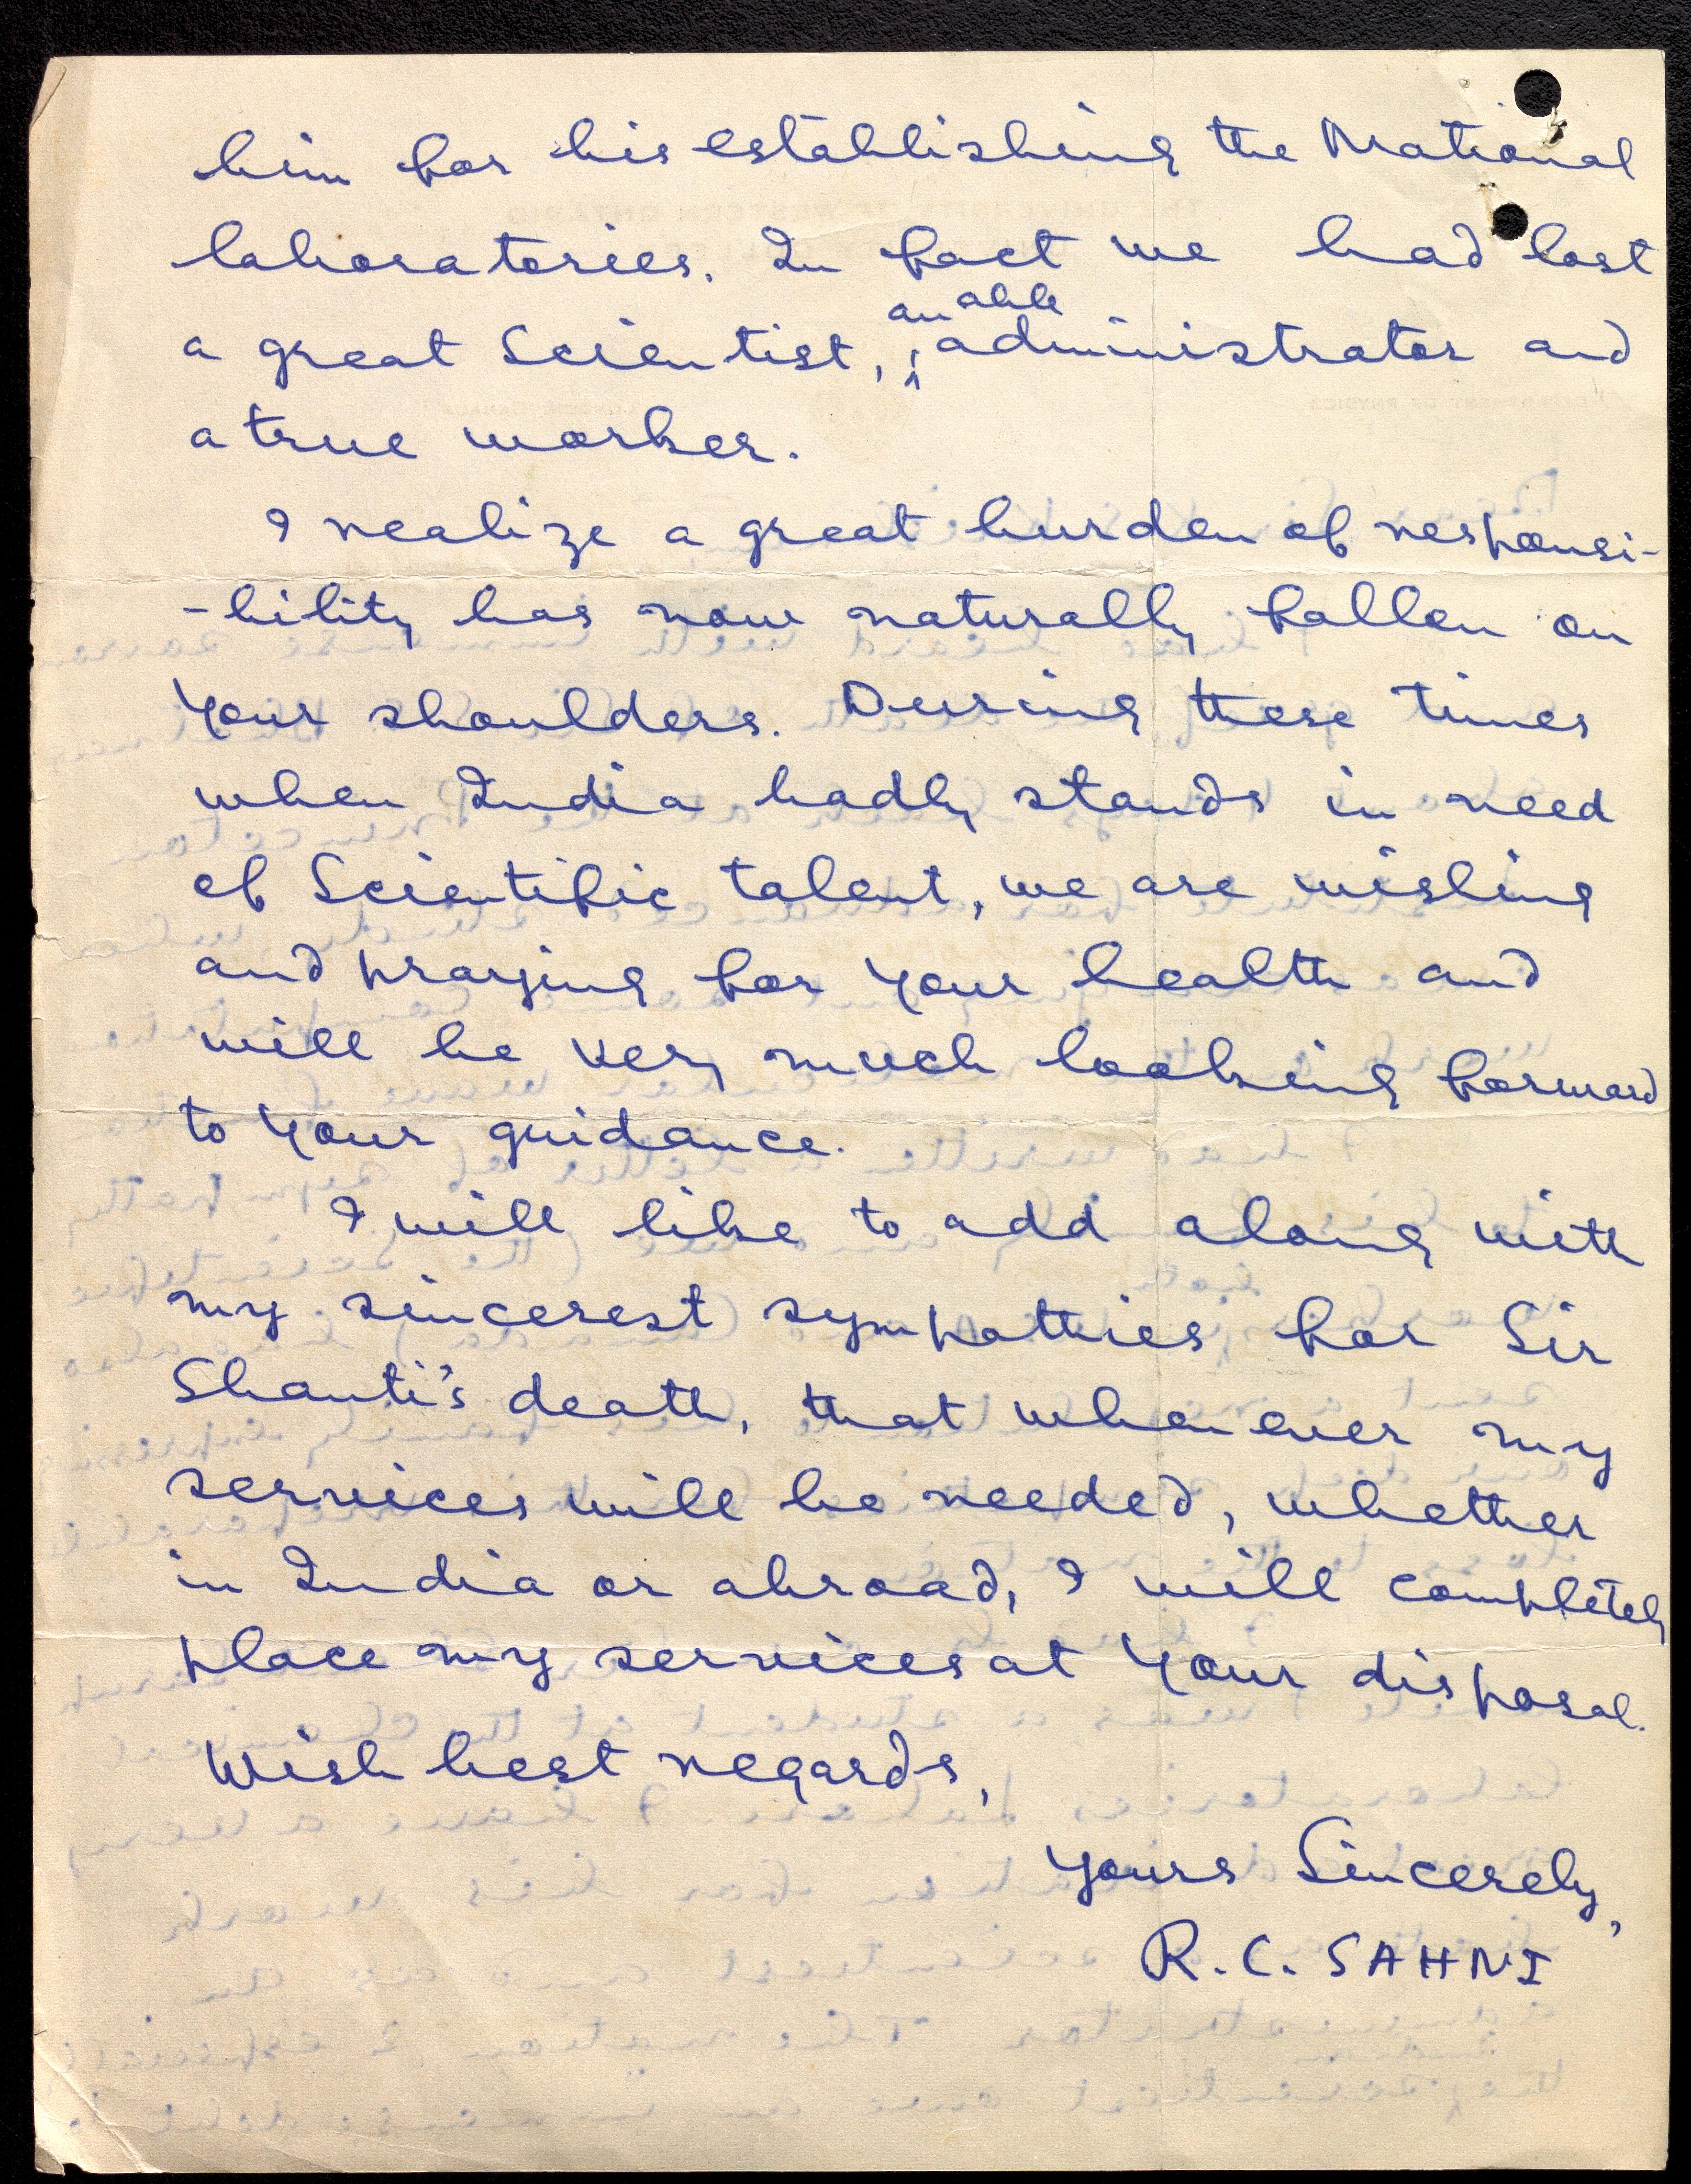 him for his establishing the National
laboratories. In fact we had lost
a great Scientist, an able administrator and
a true worker.
I realize a great burden of responsi-
-bility has now naturally fallen on
your shoulders. During these times
when India badly stands in need
of Scientific talent, we are wishing
and praying for your health and
will be very much looking forward
to your guidance.
I will like to add along with
my sincerest sympathies for Sir
Shanti's death, that whenever my
services will be needed, whether
in India or abroad, I will completely
place my services at your disposal.
Wish best regards,
Yours Sincerely,
R.C. SAHNI